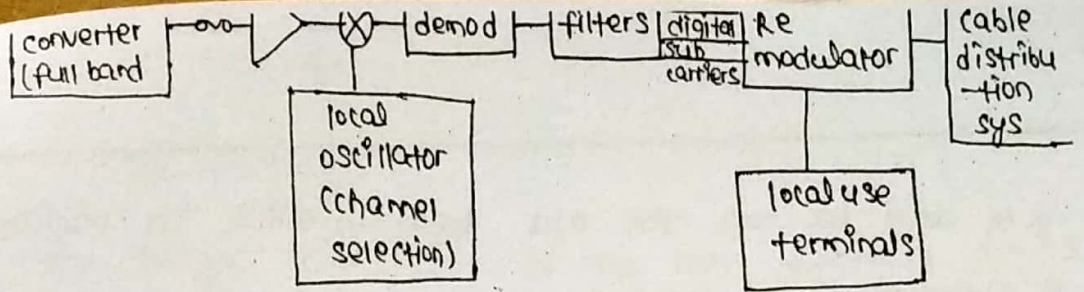 converter
(full band
demod
filters
digital
sub
carriers
Re
modulator
cable
distribu
-tion
sys
local
oscillator
(channel
selection)
local use
terminals